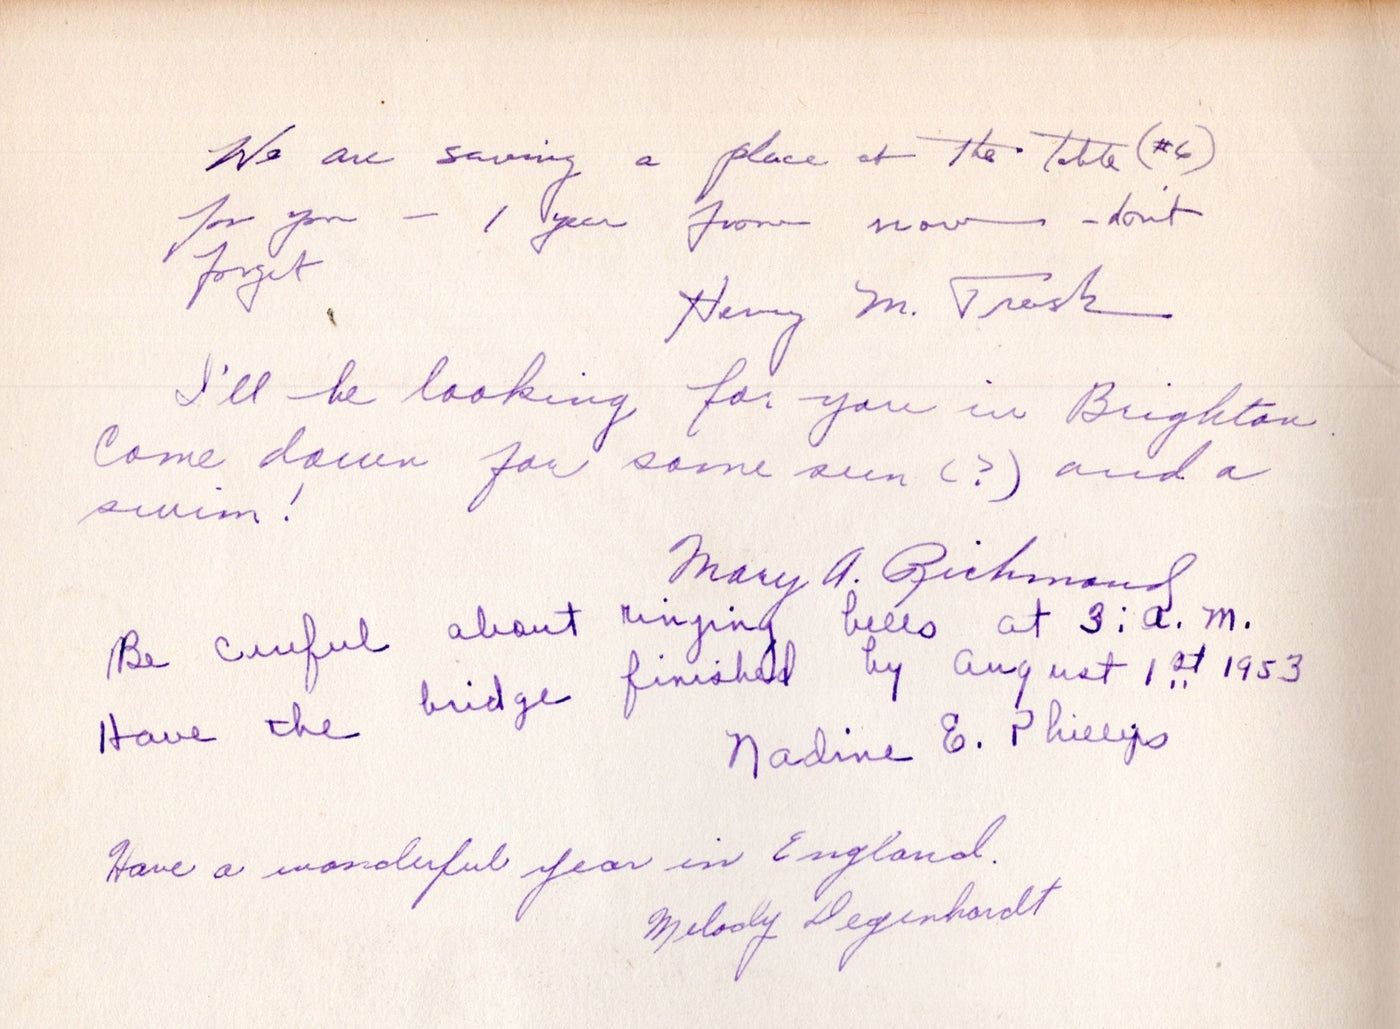 We are saving a place at the table (#6)
for you — 1 year from now — don't
forget
Henry M. Trask
I'll be looking for you in Brighton.
Come down for some sun (?) and a
swim!
Mary A. Richmond
Be careful about ringing bells at 3: a.m.
Have the bridge finished by August 1st 1953
Nadine E. Phillips
Have a wonderful year in England.
Melody Degenhardt